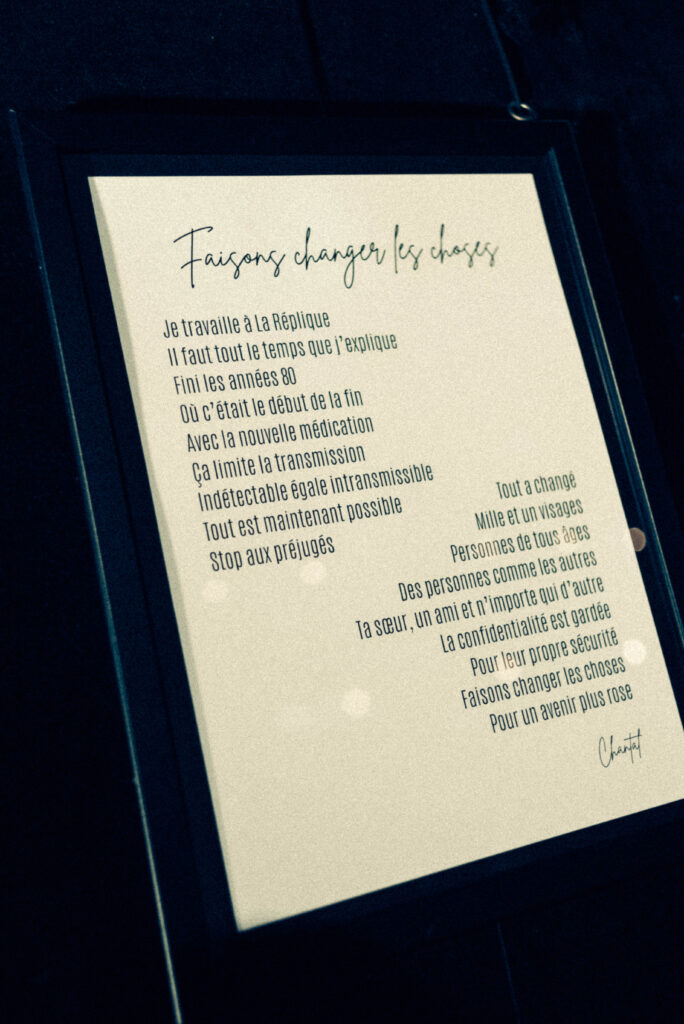 Faisons changer les choses
Je travaille à La Réplique
Il faut tout le temps que j’explique
Fini les années 80
Où c’était le début de la fin
Avec la nouvelle médication
Ça limite la transmission
Indétectable égale intransmissible
Tout est maintenant possible
Stop aux préjugés
Tout a changé
Mille et un visages
Personnes de tous âges
Des personnes comme les autres
Ta sœur, un ami et n’importe qui d’autre
La confidentialité est gardée
Pour leur propre sécurité
Faisons changer les choses
Pour un avenir plus rose
Chantal